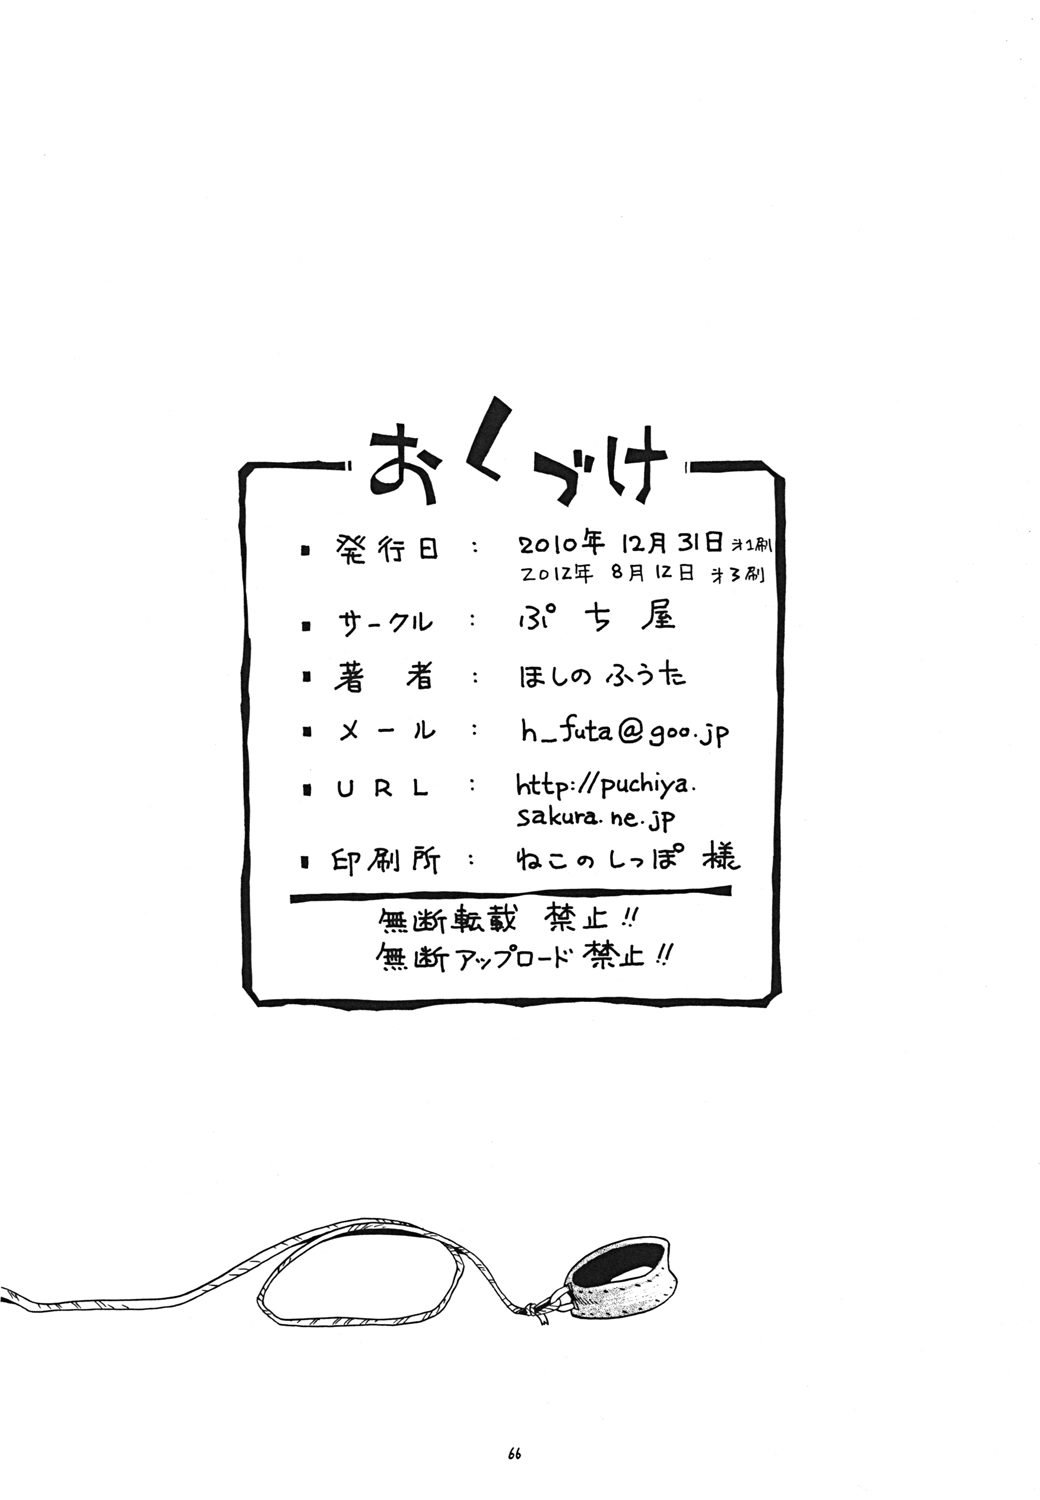 おくづけ
■ 発行日 : 2010年 12月 31日 才1刷
2012年 8月 12日 才3刷
■ サークル : ぷち屋
■ 著者 : ほしの ふうた
■ メール : h_futa@goo.jp
■ URL : http://puchiya.
sakura.ne.jp
■ 印刷所 : ねこのしっぽ 様
無断転載 禁止!!
無断アップロード 禁止!!
66